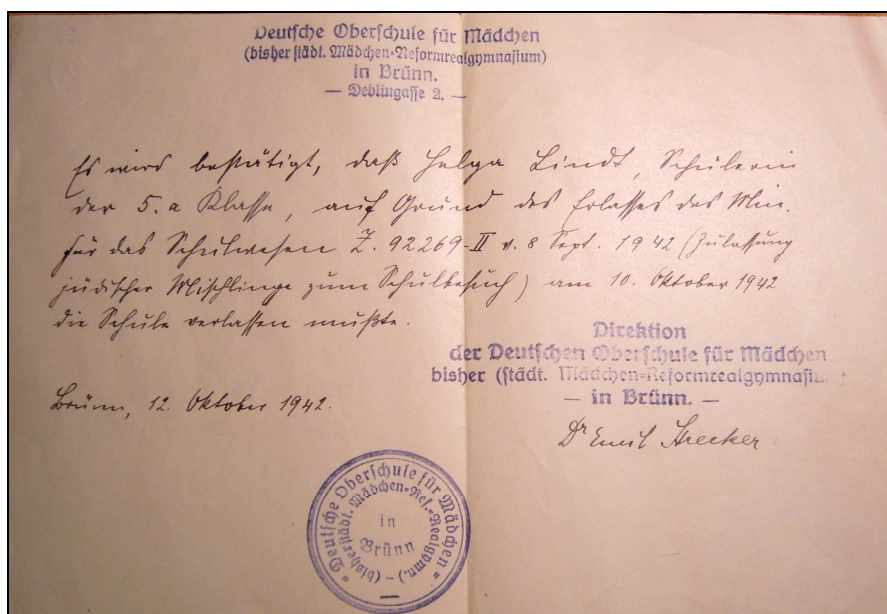 Deutsche Oberschule für Mädchen
(bisher städt. Mädchen-Reformrealgymnasium)
in Brünn.
— Deblingasse 2. —
Es wird bestätigt, daß Helga Lindt, Schülerin
der 5.a Klasse, auf Grund des Erlasses des Min.
für das Schulwesen Z. 92269-II v. 8 Sept. 1942 (Zulassung
jüdischer Mischlinge zum Schulbesuch) am 10. Oktober 1942
die Schule verlassen mußte.
Direktion
der Deutschen Oberschule für Mädchen
bisher (städt. Mädchen-Reformrealgymnasiu
— in Brünn. —
Brünn, 12. Oktober 1942.
Dr Emil
Deutsche Oberschule für Mädchen
(bisher städt. Mädchen-Ref.-Realgymn.)
in
Brünn